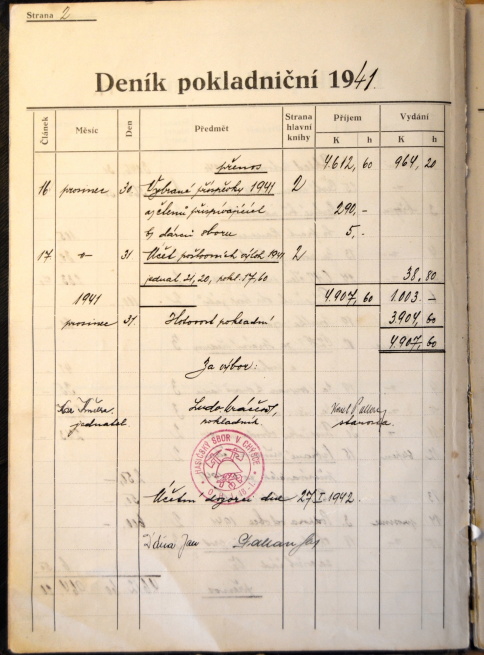 Strana 2
Deník pokladniční 1941
Článek Měsíc Den Předmět Strana hlavní knihy Příjem K h Vydání K h
přenos 4.612, 60 964, 20
16 prosinec 30. Vybrané příspěvky 1941 2
a/ členů přispívajících 290,-
b/ dárců sboru 5,-
17 -"- 31. Účet poštovních výloh 1941 2
jednat 21,20, pokl. 17,60 38, 80
1941 4.907, 60 1.003 -
prosinec 31. Hotovost pokladní 3.904, 60
4.907, 60
Za výbor:
jednatel. pokladník. starosta
HASIČSKÝ SBOR V
Účetní dozorci dne 27/I. 1942.
Jan